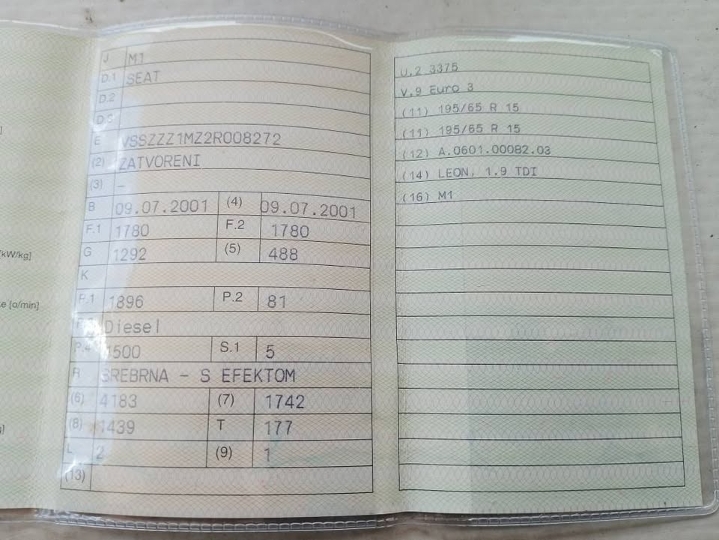 J M1
D.1 SEAT
D.2
E VSSZZZ1MZ2R008272
(2) ZATVORENI
(3) –
B 09.07.2001 (4) 09.07.2001
F.1 1780 F.2 1780
G 1292 (5) 488
K
P.1 1896 P.2 81
Diesel
S.1 5
R SREBRNA - S EFEKTOM
(6) 4183 (7) 1742
(8) 1439 T 177
L 2 (9) 1
(13)
kW/kg]
e [o/min]
U.2 3375
V.9 Euro 3
(11) 195/65 R 15
(11) 195/65 R 15
(12) A.0601.00082.03
(14) LEON, 1.9 TDI
(16) M1